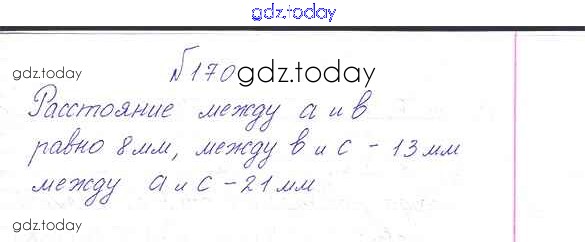 gdz.today
№170
gdz.today
gdz.today
Расстояние между а и в
равно 8 мм, между в и с - 13 мм
между а и с - 21 мм
gdz.today
gdz.today